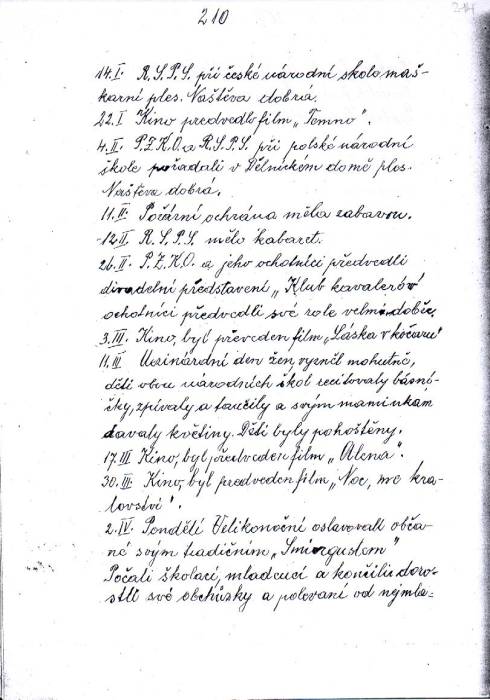 210
214
14.I. R.S.P.S. při české národní škole maš-
karní ples. Naštěva dobrá.
22.I Kino předvedlo film „Temno".
4.II. P.Z.K.O. a R.S.P.S. při polské národní
škole pořadali v Dělnickém domě ples.
Naštěva dobrá.
11.II. Požární ochrana měla zabavou.
-12.II. R.S.P.S. mělo kabaret.
26.II. P.Z.K.O. a jeho ochotníci předvedli
divadelní představení „Klub kavalerów"
ochotníci předvedli své role velmi dobře.
3.III. Kino, byl převeden film „Láska v kočaru"
11.III Mezinárdní den žen, vyzněl mohutně,
děti obou národních škol recitovaly básnič-
čky, zpívaly a tančily a svým maminkam
davaly květiny. Děti byly pohoštěny.
17.III Kino, byl předveden film „Alena".
30.III. Kino, byl předveden film „Noc, mé kra-
lovství".
2.IV. Pondělí Velikonoční oslavovali obča-
né svým tradičním „Smirgustem"
Počali školaci, mladcucí a končili doro-
stli své obchůzky a polovaní od nejmla=